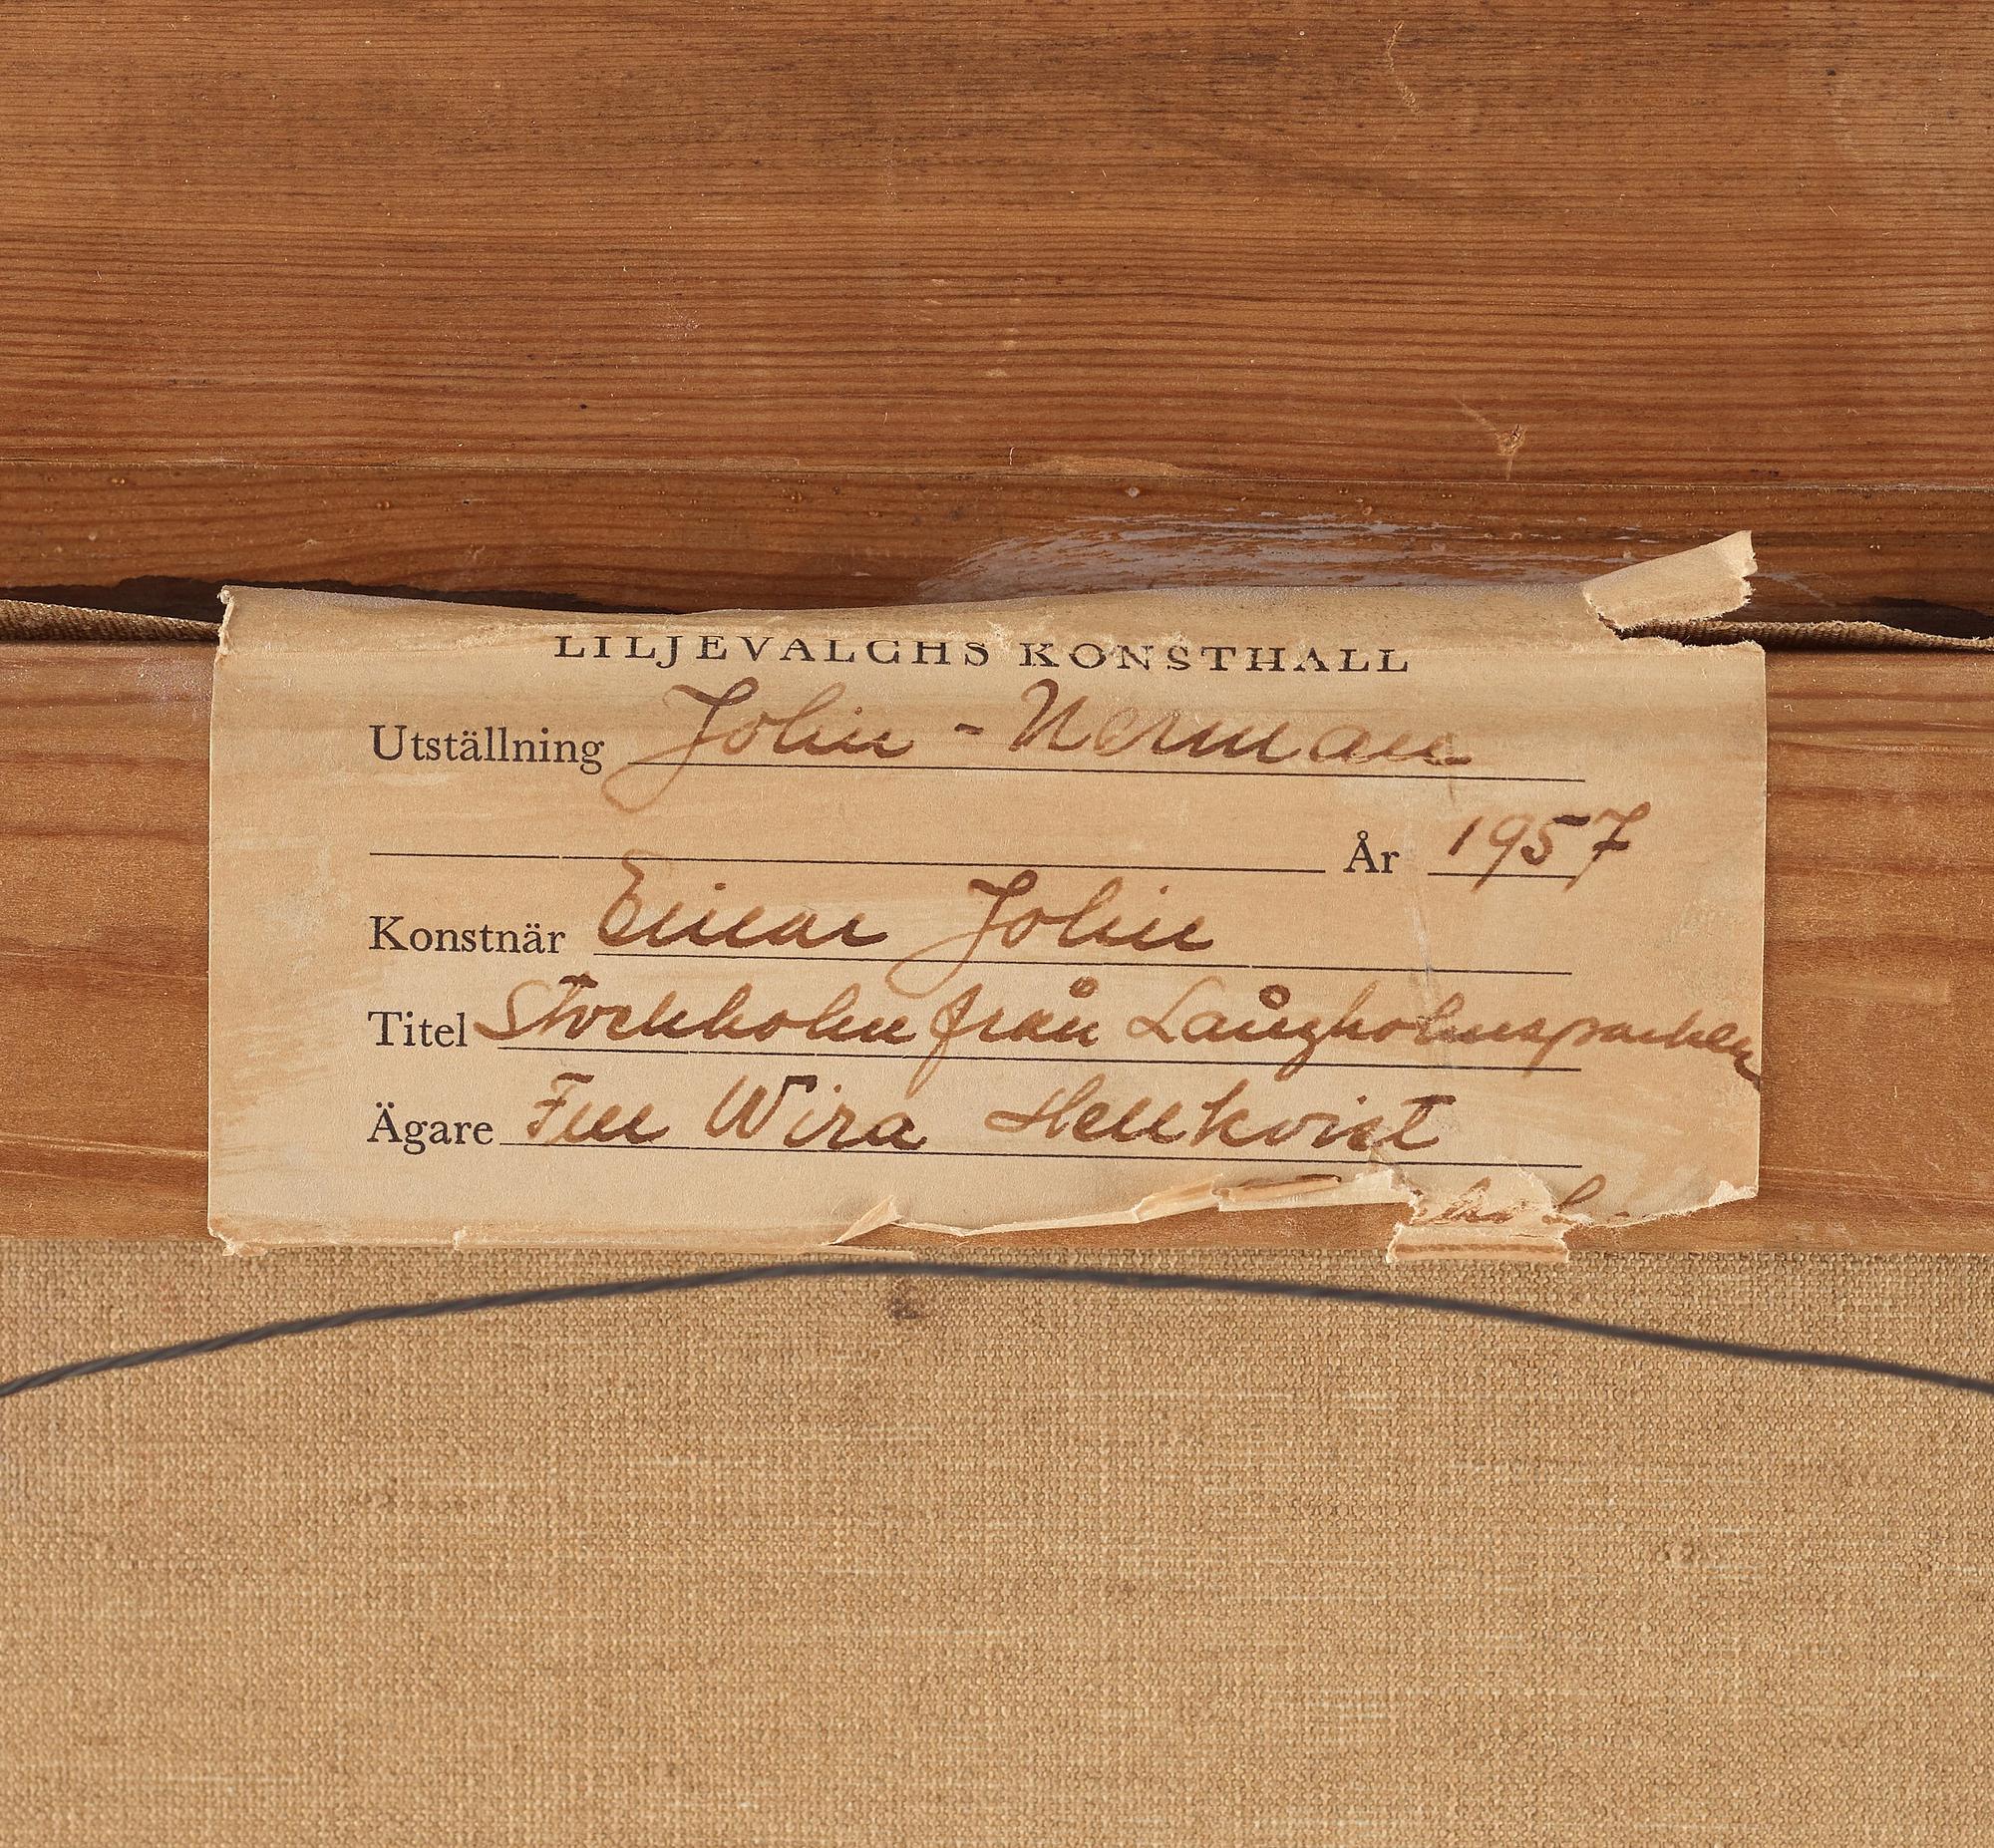 LILJEVALCHS KONSTHALL
Utställning Jolin - Nerman
År 1957
Konstnär Einar Jolin
Titel Stockholm från Långholmsparken
Ägare Fru Wira Hellkvist